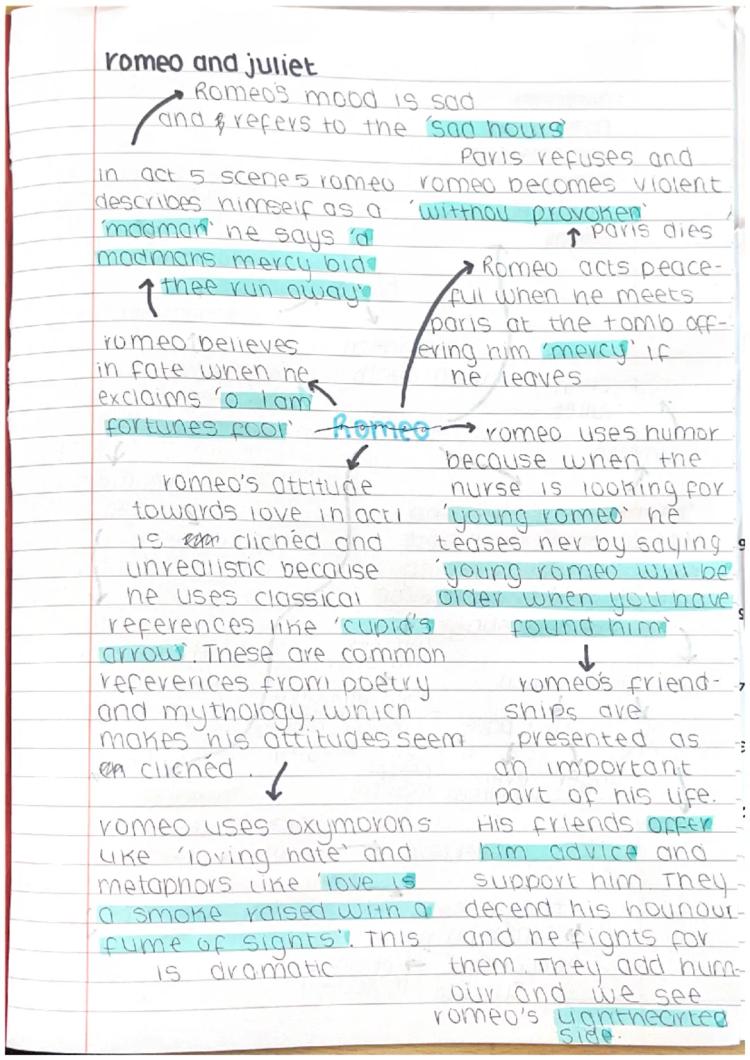 romeo and juliet
Romeo's mood is sad
and refers to the 'sad hours'
in act 5 scene 5 romeo
describes himself as a
'madman' he says 'a
madmans mercy bid
thee run away'
romeo believes
in fate when he
exclaims 'o I am
fortunes fool'
Paris refuses and
romeo becomes violent
'withou provoken'
Paris dies
Romeo acts peace-
ful when he meets
paris at the tomb off-
ering him 'mercy' if
he leaves
Romeo
romeo's attitude
towards love in act 1
is clichéd and
unrealistic because
he uses classical
references like 'cupid's
arrow'. These are common
references from poetry
and mythology, which
makes his attitudes seem
clichéd.
romeo uses oxymorons
like 'loving hate' and
metaphors like 'love is
a smoke raised with a
fume of sights'. This
is dramatic
romeo uses humor
because when the
nurse is looking for
'young romeo' he
teases her by saying
'young romeo will be
older when you have
found him'
romeo's friend-
ships are
presented as
an important
part of his life.
His friends offer
him advice and
support him. They
defend his hounour
and he fights for
them. They add hum-
our and we see
romeo's lighthearted
side.